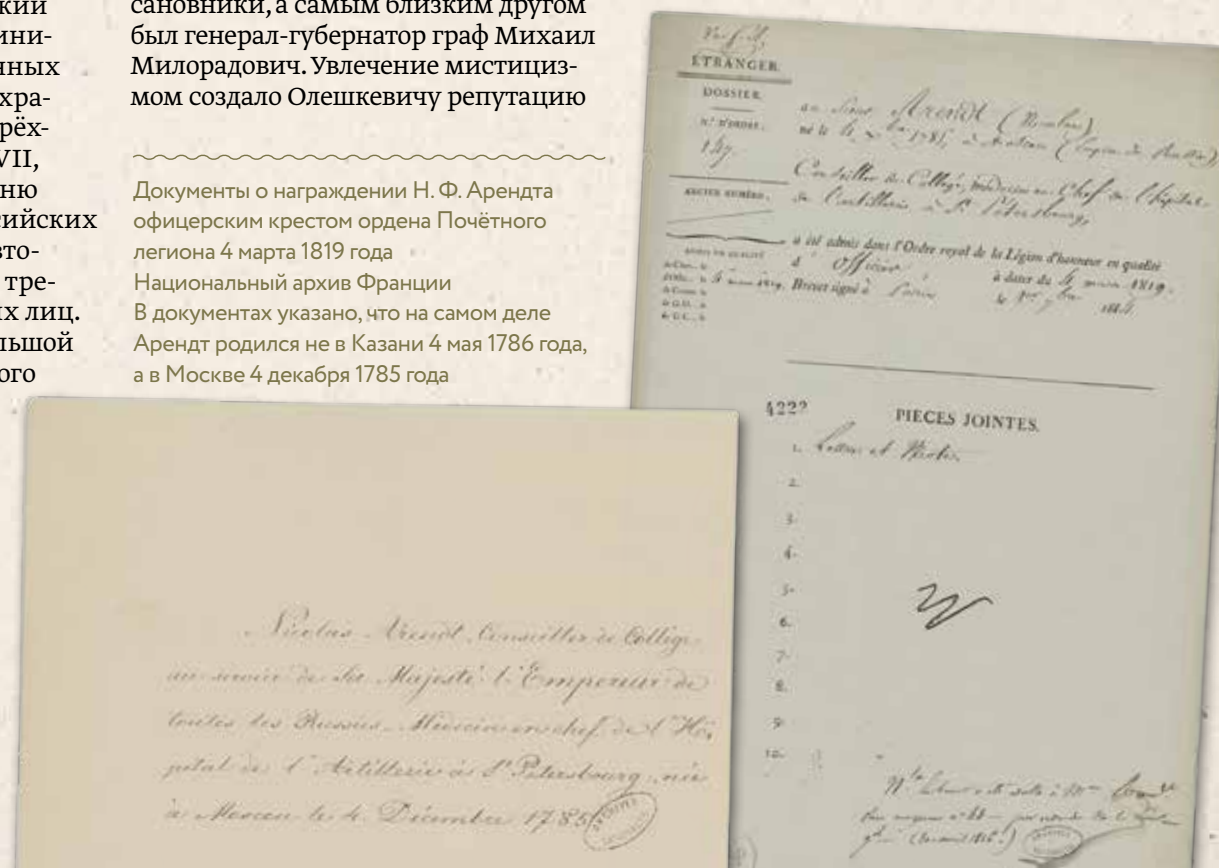 кий
ини-
нных
хра-
рёх-
VII,
ню
сийских
вто-
тре-
х лиц.
льшой
ого
сановники, а самым близким другом
был генерал-губернатор граф Михаил
Милорадович. Увлечение мистициз-
мом создало Олешкевичу репутацию
Документы о награждении Н. Ф. Арендта
офицерским крестом ордена Почётного
легиона 4 марта 1819 года
Национальный архив Франции
В документах указано, что на самом деле
Арендт родился не в Казани 4 мая 1786 года,
а в Москве 4 декабря 1785 года
ÉTRANGER.
DOSSIER
N.º D'ORDRE.
147
ANCIEN NUMÉRO.
au Sieur Arendt (Nicolas)
né le 4 1785, à Moscou
Conseiller de Collège, médecin en Chef de l'hôpital
de l'artillerie à St Pétersbourg,
a été admis dans l'Ordre royal de la Légion d'honneur en qualité
d'Officier à dater du 4 mars 1819.
Brevet signé à Paris
4222
PIECES JOINTES.
1.
2.
3.
4.
5.
6.
7.
8.
9.
10.
Nicolas Arendt Conseiller de Collège
au service de Sa Majesté l'Empereur de
toutes les Russies Médecin en chef de l'Hô-
pital de l'Artillerie à St Petersbourg, née
à Moscou le 4 Décembre 1785